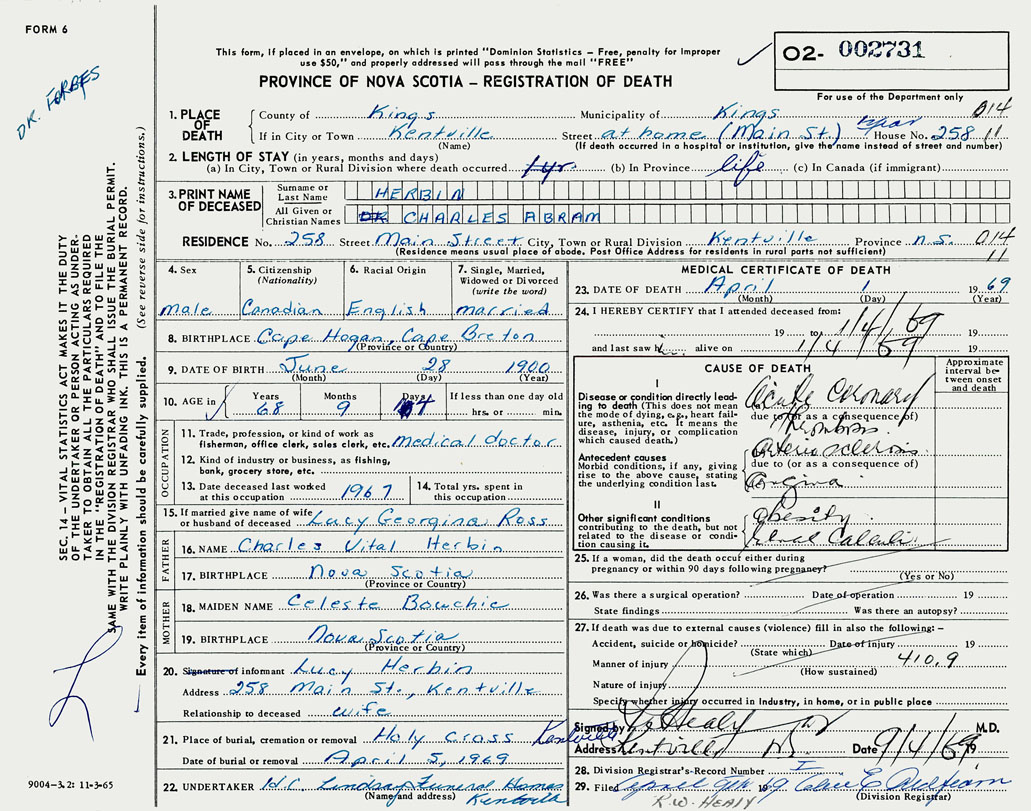 FORM 6
DR. FORBES
This form, if placed in an envelope, on which is printed "Dominion Statistics – Free, penalty for improper
use $50," and properly addressed will pass through the mail "FREE"
PROVINCE OF NOVA SCOTIA – REGISTRATION OF DEATH
O2- 002731
For use of the Department only
1. PLACE OF DEATH
County of Kings Municipality of Kings 014
If in City or Town Kentville Street at home (Main St.) House No. 258 11
(Name) (If death occurred in a hospital or institution, give the name instead of street and number)
2. LENGTH OF STAY (in years, months and days)
(a) In City, Town or Rural Division where death occurred 1 yr. (b) In Province life (c) In Canada (if immigrant)
3. PRINT NAME OF DECEASED
Surname or Last Name HERBIN
All Given or Christian Names DR CHARLES ABRAM
RESIDENCE No. 258 Street Main Street City, Town or Rural Division Kentville Province n.s. 014
(Residence means usual place of abode. Post Office Address for residents in rural parts not sufficient) 11
4. Sex
male
5. Citizenship (Nationality)
Canadian
6. Racial Origin
English
7. Single, Married, Widowed or Divorced (write the word)
married
8. BIRTHPLACE Cape Hogan, Cape Breton
(Province or Country)
9. DATE OF BIRTH June 28 1900
(Month) (Day) (Year)
10. AGE in Years 68 Months 9 Days 4 If less than one day old hrs. or min.
OCCUPATION
11. Trade, profession, or kind of work as
fisherman, office clerk, sales clerk, etc. medical doctor
12. Kind of industry or business, as fishing,
bank, grocery store, etc.
13. Date deceased last worked at this occupation 1967
14. Total yrs. spent in this occupation
15. If married give name of wife
or husband of deceased Lucy Georgina Ross
FATHER
16. NAME Charles Vital Herbin
17. BIRTHPLACE Nova Scotia
(Province or Country)
MOTHER
18. MAIDEN NAME Celeste Bouchie
19. BIRTHPLACE Nova Scotia
(Province or Country)
20. Signature of informant Lucy Herbin
Address 258 Main St., Kentville
Relationship to deceased wife
21. Place of burial, cremation or removal Holy Cross Kentville
Date of burial or removal April 5, 1969
22. UNDERTAKER W.C. Lindsay Funeral Homes
(Name and address) Kentville
MEDICAL CERTIFICATE OF DEATH
23. DATE OF DEATH April 1 1969
(Month) (Day) (Year)
24. I HEREBY CERTIFY that I attended deceased from:
19 to 1/4/69 19
and last saw h alive on 1/4/69 19
CAUSE OF DEATH
Approximate interval between onset and death
I
Disease or condition directly leading to death (This does not mean
the mode of dying, e.g., heart failure, asthenia, etc. It means the
disease, injury, or complication
which caused death.)
Acute Coronary
due to (or as a consequence of)
Thrombosis
Antecedent causes
Morbid conditions, if any, giving
rise to the above cause, stating
the underlying condition last.
Arteriosclerosis
due to (or as a consequence of)
Angina
II
Other significant conditions
contributing to the death, but not
related to the disease or condition causing it.
Obesity
Renal Calculi
25. If a woman, did the death occur either during
pregnancy or within 90 days following pregnancy?
(Yes or No)
26. Was there a surgical operation? Date of operation 19
State findings Was there an autopsy?
27. If death was due to external causes (violence) fill in also the following: –
Accident, suicide or homicide? Date of injury 19
(State which)
Manner of injury 410.9
(How sustained)
Nature of injury
Specify whether injury occurred in Industry, in home, or in public place
Signed by Healy M.D.
Address Kentville NS Date 9/4/69 19
28. Division Registrar's Record Number
29. Filed April 9th 19
(Division Registrar)
R.W. HEALY
SEC. 14 – VITAL STATISTICS ACT MAKES IT THE DUTY
OF THE UNDERTAKER OR PERSON ACTING AS UNDERTAKER TO OBTAIN ALL THE PARTICULARS REQUIRED
IN THE "REGISTRATION OF DEATH" AND TO FILE THE
SAME WITH THE DIVISION REGISTRAR WHO SHALL ISSUE THE BURIAL PERMIT.
WRITE PLAINLY WITH UNFADING INK. THIS IS A PERMANENT RECORD.
Every item of information should be carefully supplied. (See reverse side for instructions.)
9004–3.2: 11-3-65